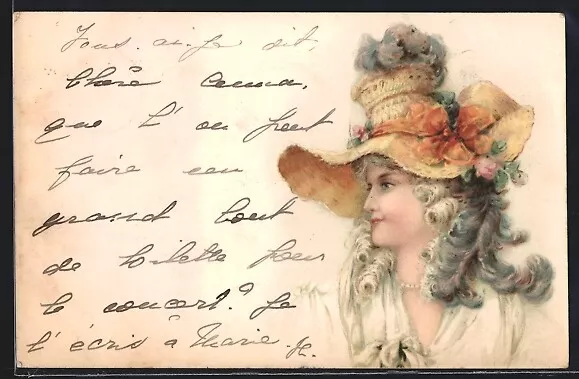 Vous ai-je dit,
chère Emma,
que l'on peut
faire un
grand bout
de toilette pour
le concert? Je
l'écris à Marie. H.